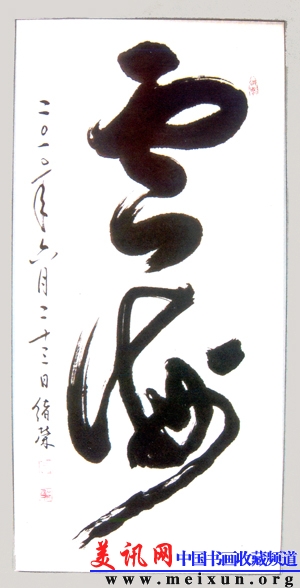 云海
二〇一〇年六月二十三日绪荣
美讯网 中国书画收藏频道
www.meixun.org